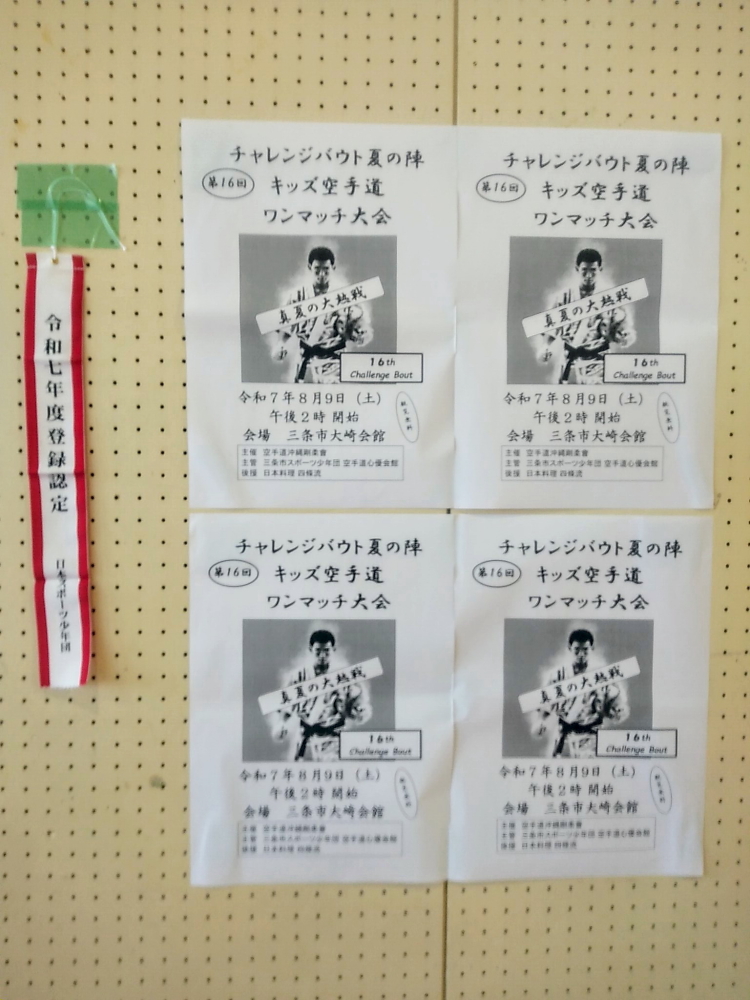 令和七年度登録認定
日本スポーツ少年団
チャレンジバウト夏の陣
第16回
キッズ空手道
ワンマッチ大会
真夏の大熱戦
16th
Challenge Bout
令和7年8月9日（土）
午後2時 開始
会場　三条市大崎会館
主催　空手道沖縄剛柔會
主管　三条市スポーツ少年団 空手道心優会館
後援　日本料理 四條流
チャレンジバウト夏の陣
第16回
キッズ空手道
ワンマッチ大会
真夏の大熱戦
16th
Challenge Bout
令和7年8月9日（土）
午後2時 開始
会場　三条市大崎会館
主催　空手道沖縄剛柔會
主管　三条市スポーツ少年団 空手道心優会館
後援　日本料理 四條流
チャレンジバウト夏の陣
第16回
キッズ空手道
ワンマッチ大会
真夏の大熱戦
16th
Challenge Bout
令和7年8月9日（土）
午後2時 開始
会場　三条市大崎会館
主催　空手道沖縄剛柔會
主管　三条市スポーツ少年団 空手道心優会館
後援　日本料理 四條流
チャレンジバウト夏の陣
第16回
キッズ空手道
ワンマッチ大会
真夏の大熱戦
16th
Challenge Bout
令和7年8月9日（土）
午後2時 開始
会場　三条市大崎会館
主催　空手道沖縄剛柔會
主管　三条市スポーツ少年団 空手道心優会館
後援　日本料理 四條流